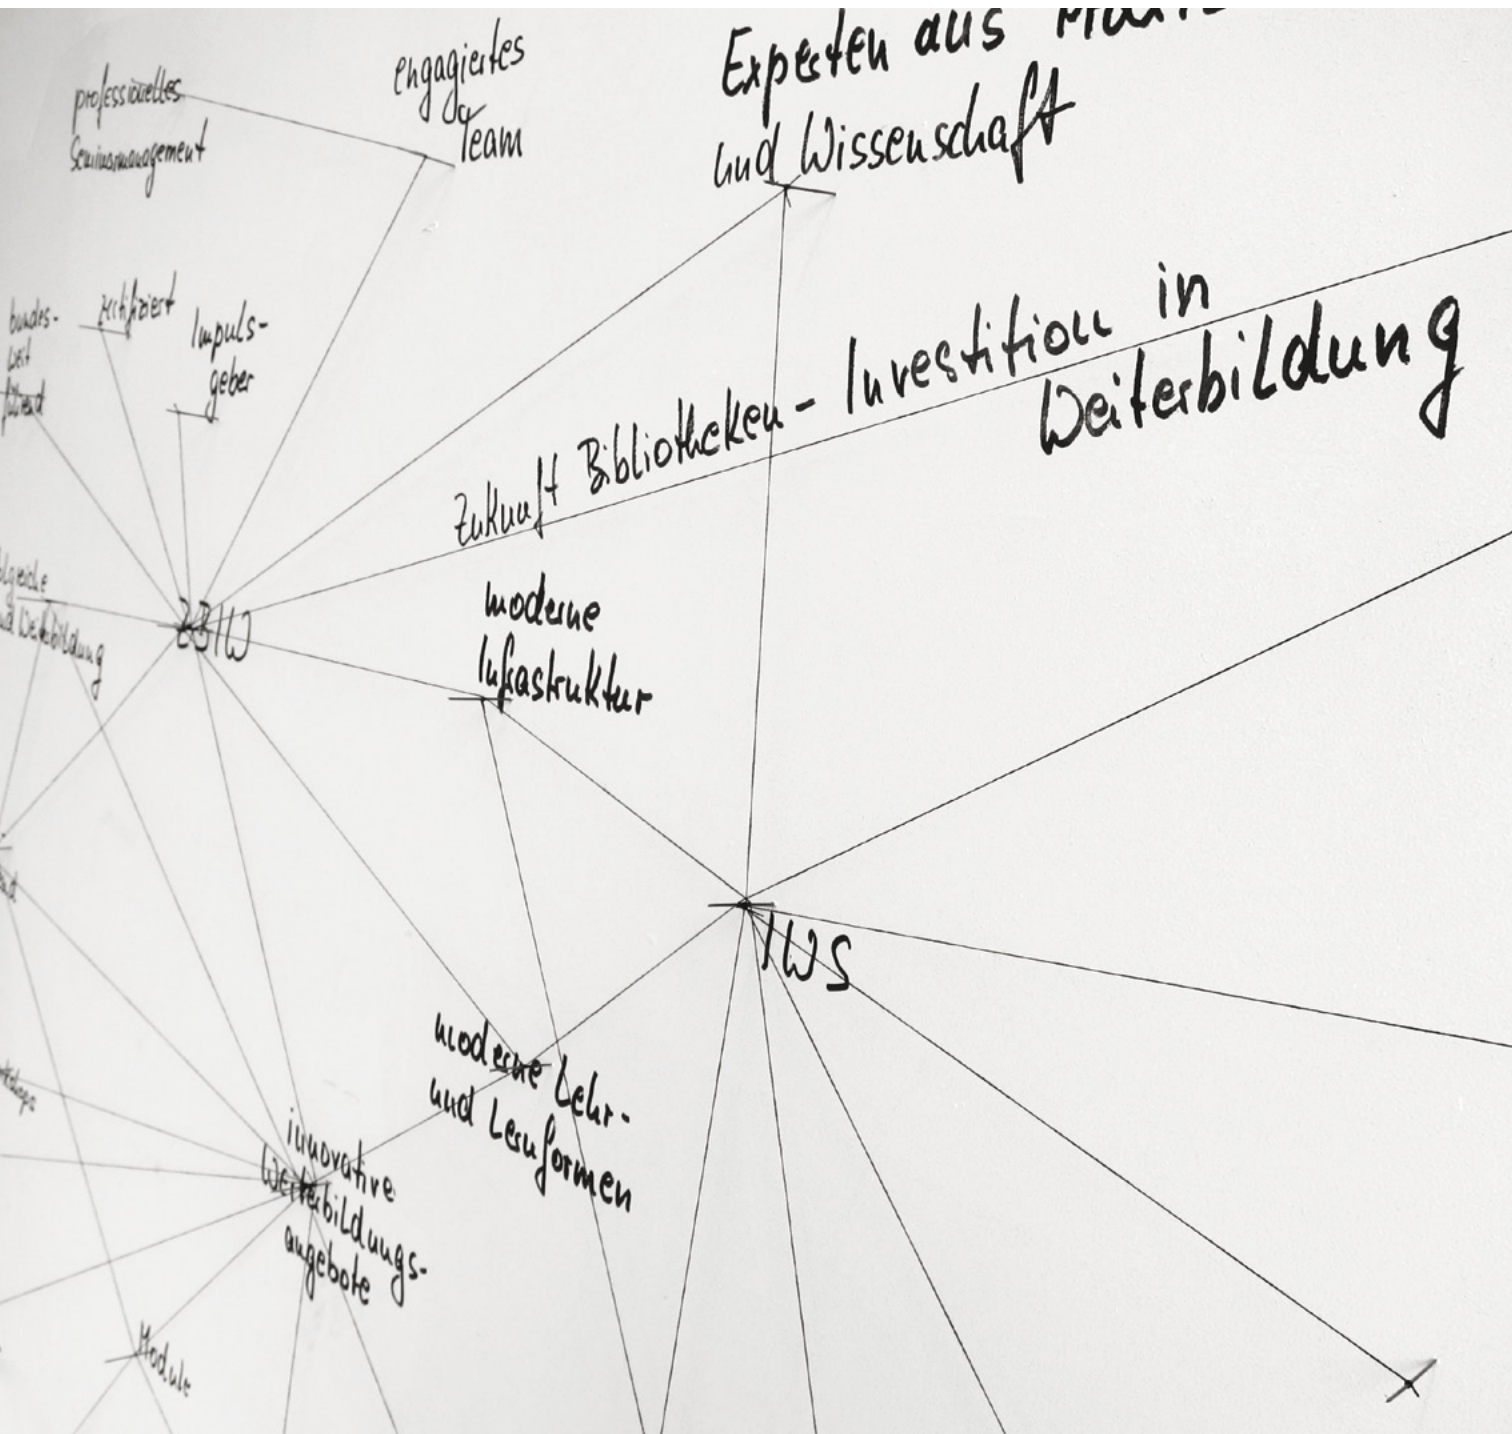 engagiertes
Team
professionelles
Seminarmanagement
Experten aus
und Wissenschaft
bundes-
weit
führend
zertifiziert
Impuls-
geber
Zukunft Bibliotheken - Investition in
Weiterbildung
ZBIW
und Weiterbildung
moderne
Infrastruktur
IWS
moderne Lehr-
und Lernformen
innovative
Weiterbildungs-
angebote
Module